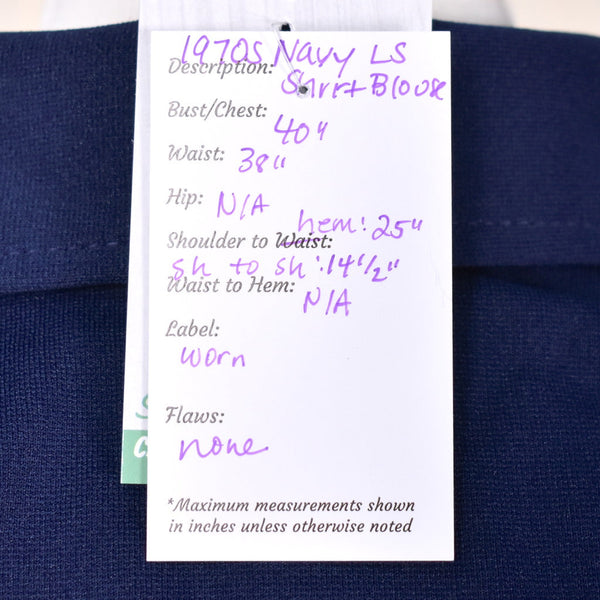 1970s Navy LS
Description: Shirt Blouse
Bust/Chest: 40"
Waist: 38"
Hip: N/A
hem: 25"
Shoulder to Waist:
sh to sh: 14 1/2"
Waist to Hem: N/A
Label:
worn
Flaws:
none
*Maximum measurements shown
in inches unless otherwise noted